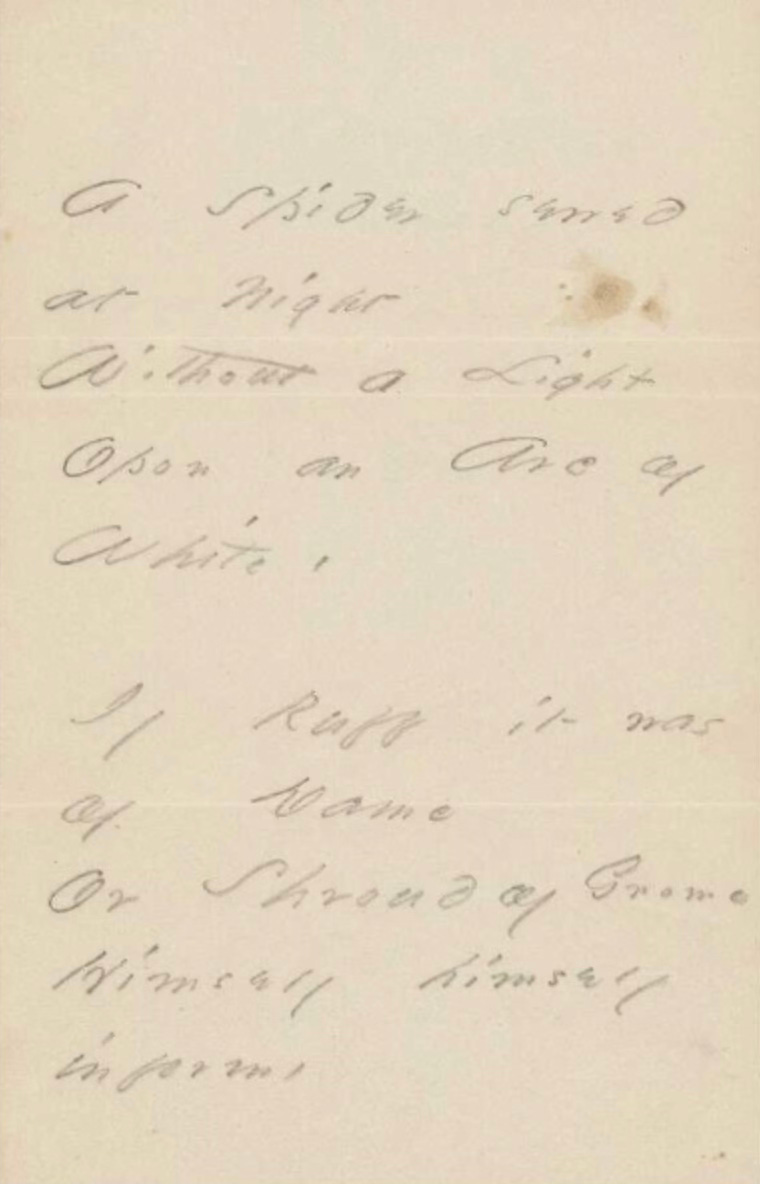 A Spider sewed
at Night
Without a Light
Opon an Arc of
White.
If Ruff it was
of Dame
Or Shroud of Gnome
Himself himself
inform.